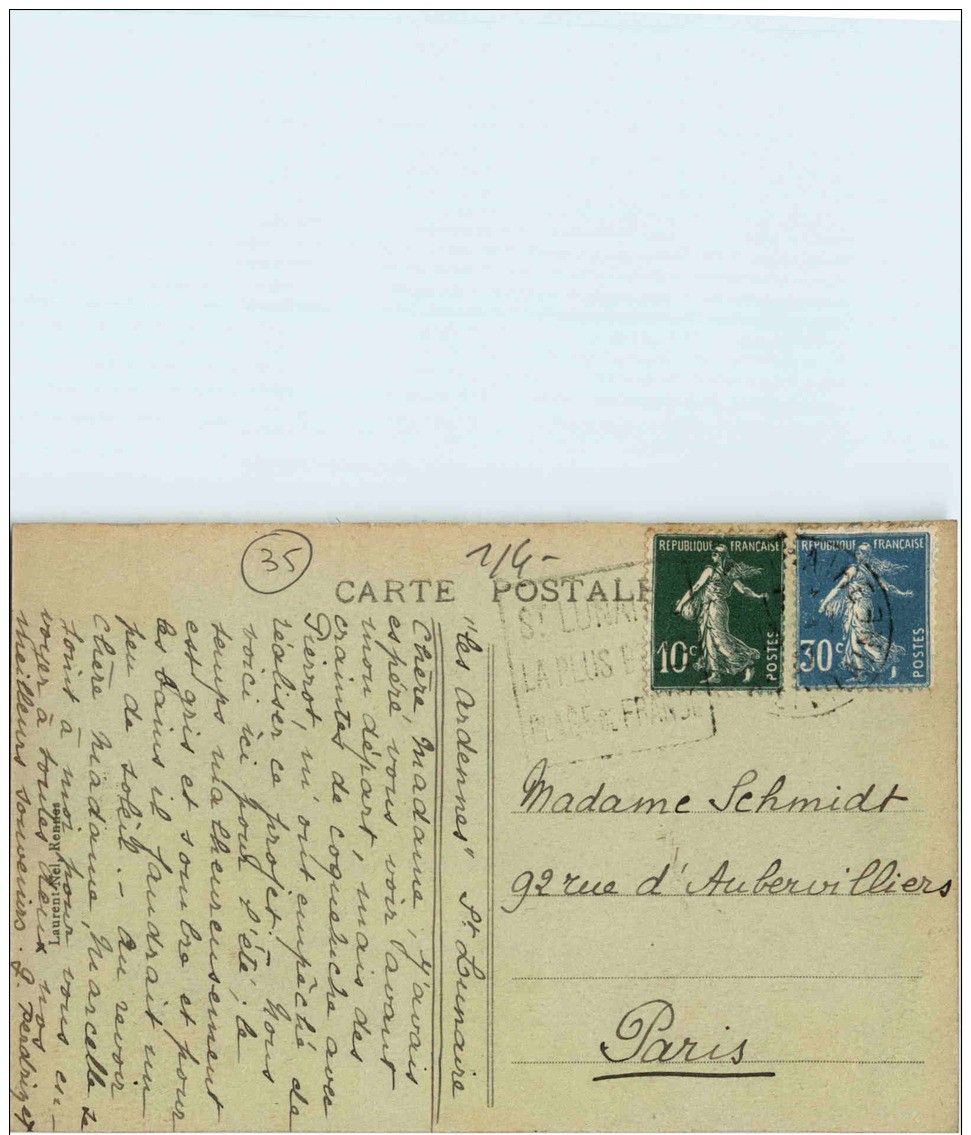 35
1/4-
CARTE POSTALE
ST LUNAI
LA PLUS BE
PLAGE DE FRANCE
REPUBLIQUE FRANÇAISE
10c
POSTES
REPUBLIQUE FRANÇAISE
30c
POSTES
Madame Schmidt
92 rue d'Aubervilliers
Paris
"Les Ardennes" St Lunaire
Chère Madame, j'avais
espéré vous voir avant
mon départ, mais des
craintes de coqueluche avec
Pierrot, m'ont empêché de
réaliser ce projet! Nous
voici ici pour l'été; le
temps malheureusement
est gris et sombre et pour
les bains il faudrait un
peu de soleil. - Au revoir
Chère Madame, Marcelle se
joint à moi pour vous en-
voyer à toutes deux nos
meilleurs souvenirs. G. Perdrizet
Laurent-Nel, Rennes